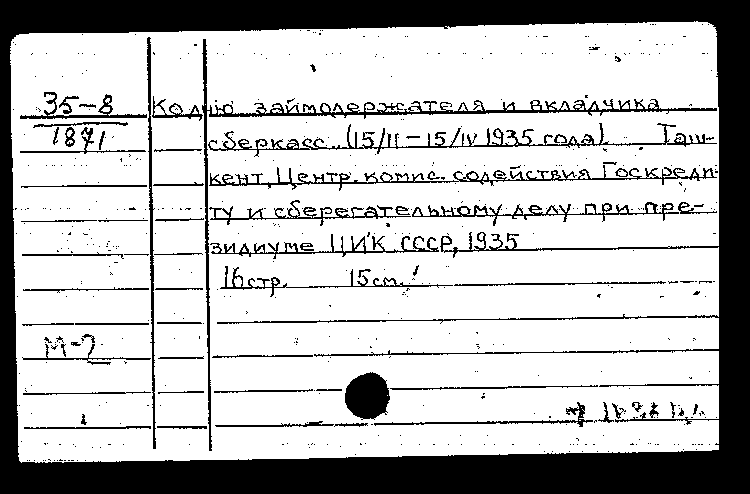 35-8
1871
Ко дню займодержателя и вкладчика
сберкасс. (15/II-15/IV 1935 года). Таш-
кент, Центр. комис. содействия Госкреди-
ту и сберегательному делу при пре-
зидиуме ЦИК СССР, 1935
16стр. 15см.
М-2